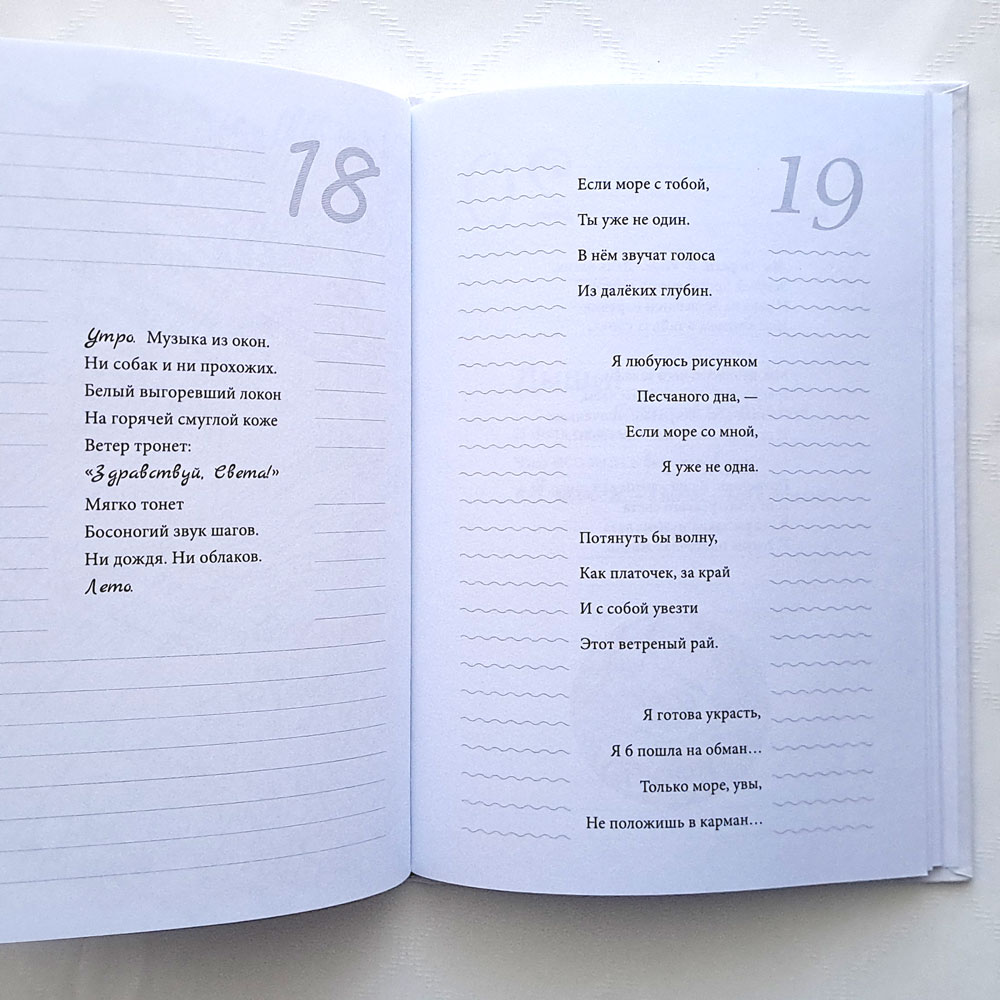 18
Утро. Музыка из окон.
Ни собак и ни прохожих.
Белый выгоревший локон
На горячей смуглой коже
Ветер тронет:
«Здравствуй, Света!»
Мягко тонет
Босоногий звук шагов.
Ни дождя. Ни облаков.
Лето.
19
Если море с тобой,
Ты уже не один.
В нём звучат голоса
Из далёких глубин.
Я любуюсь рисунком
Песчаного дна, —
Если море со мной,
Я уже не одна.
Потянуть бы волну,
Как платочек, за край
И с собой увезти
Этот ветреный рай.
Я готова украсть,
Я б пошла на обман…
Только море, увы,
Не положишь в карман…